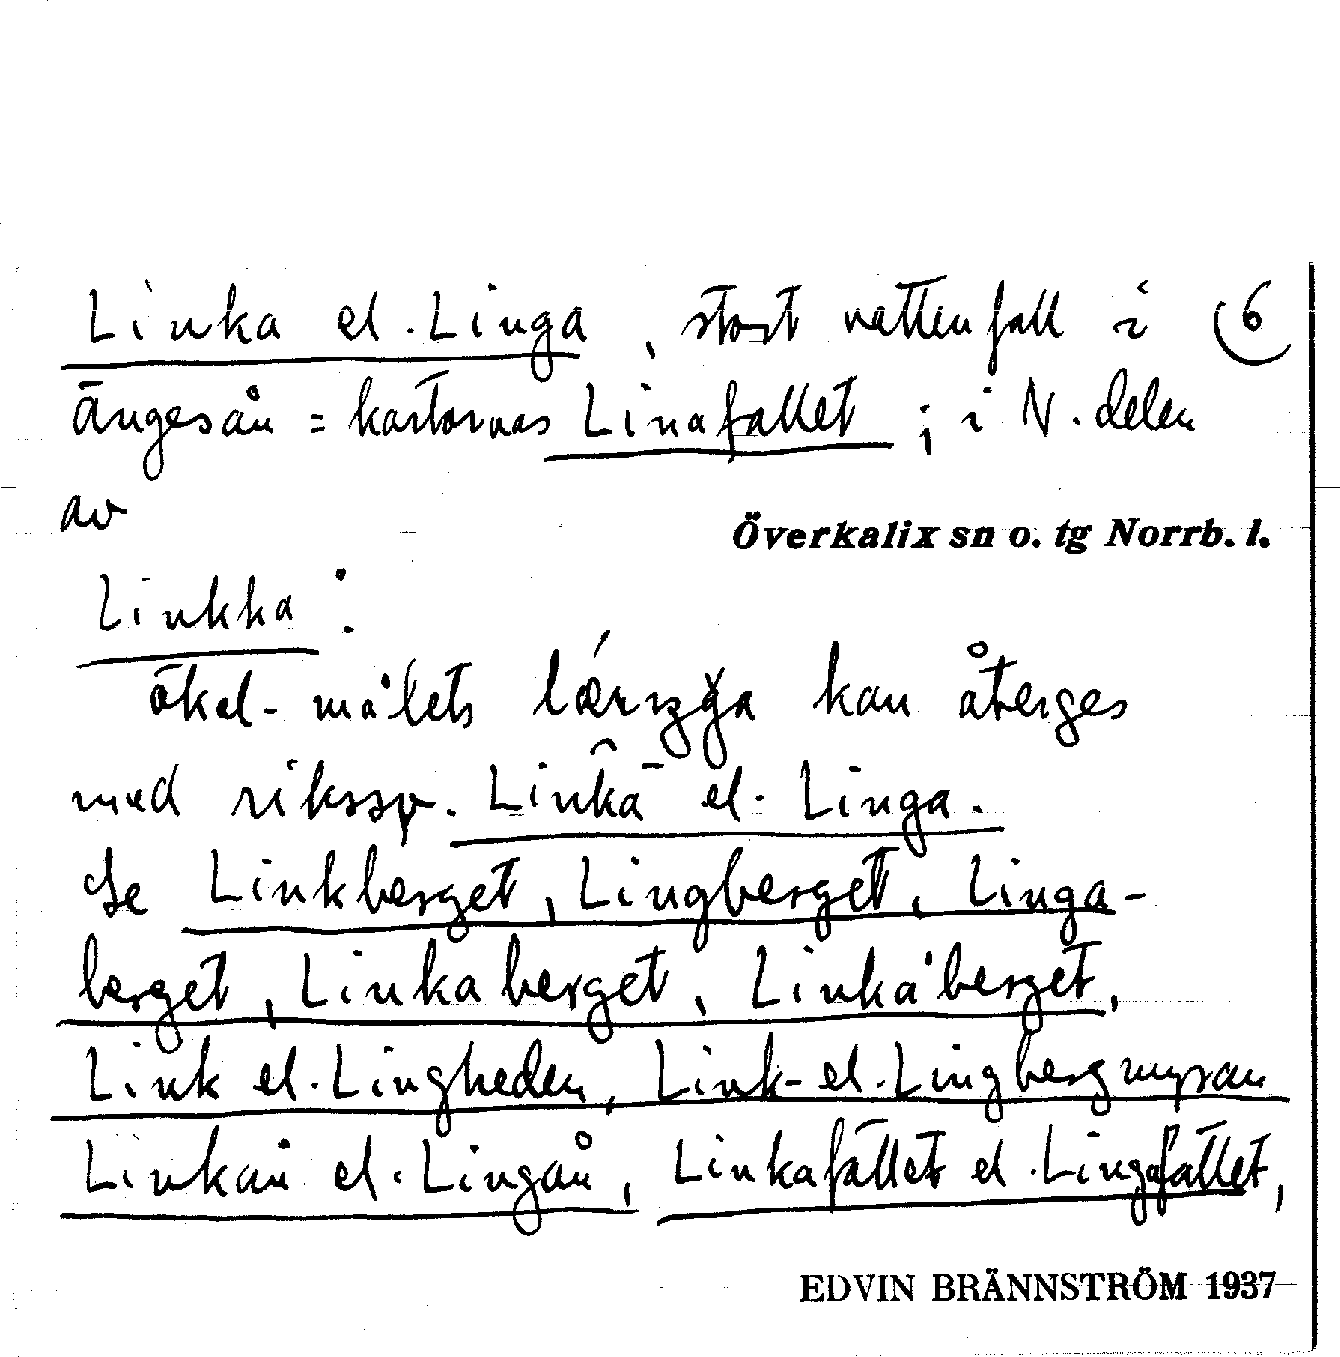 Linka el. Linga, stort vattenfall i (6
Ängesån = kartornas Linafallet; i N. delen
av
Överkalix sn o. tg Norrb. l.
Linkka:
Ökal-målets kan återges
med rikssp. Linka el. Linga.
Se Linkberget, Lingberget, Linga-
berget, Linkaberget, Linkåberget,
Link el. Lingheden, Link- el. Lingbergmyran
Linkån el. Lingån, Linkafället el. Lingafället,
EDVIN BRÄNNSTRÖM 1937